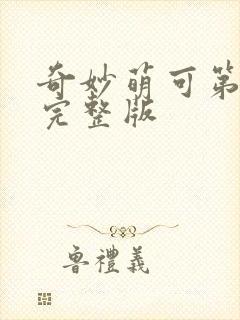 奇妙萌可第
完整版
魯禮義